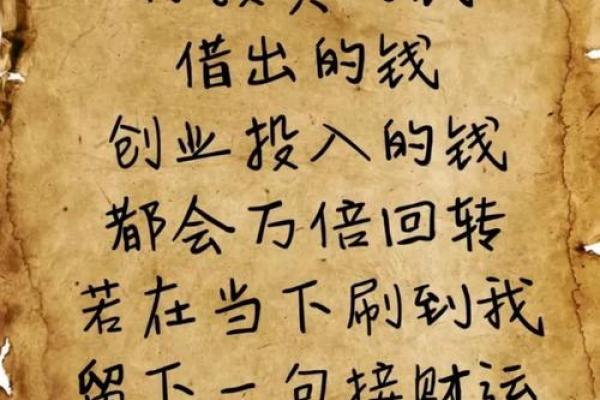 借出的钱
创业投入的钱
都会万倍回转
若在当下刷到我
留下一句接财运